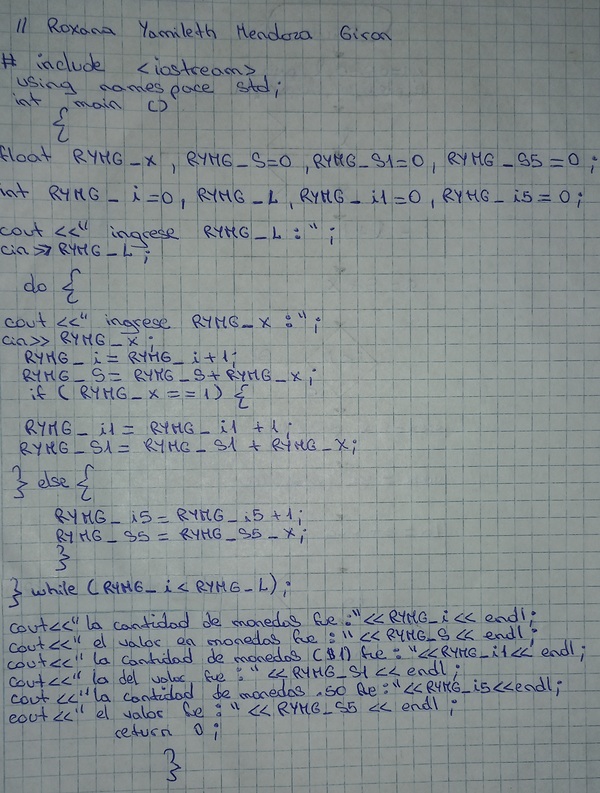 // Roxana Yamileth Mendoza Giron
# include <iostream>
using namespace std;
int main ()
{
float RYMG_x, RYMG_S=0, RYMG_S1=0, RYMG_S5=0;
int RYMG_i=0, RYMG_L, RYMG_i1=0, RYMG_i5=0;
cout <<" ingrese RYMG_L :";
cin>> RYMG_L;
do {
cout <<" ingrese RYMG_x :";
cin>> RYMG_x;
RYMG_i = RYMG_i+1;
RYMG_S= RYMG_S+RYMG_x;
if (RYMG_x==1) {
RYMG_i1= RYMG_i1 +1;
RYMG_S1= RYMG_S1 + RYMG_x;
} else {
RYMG_i5= RYMG_i5+1;
RYMG_S5= RYMG_S5-x;
}
} while (RYMG_i< RYMG_L);
cout<<" la cantidad de monedas fue :"<<RYMG_i<< endl;
cout<<" el valor en monedas fue :" <<RYMG_S<< endl;
cout<<" la cantidad de monedas ($1) fue :"<<RYMG_i1<< endl;
cout<<" la del valor fue :" <<RYMG_S1<< endl;
cout<<"la cantidad de monedas .50 fue:"<<RYMG_i5<<endl;
cout<<" el valor fue :" << RYMG_S5 << endl;
return 0;
}